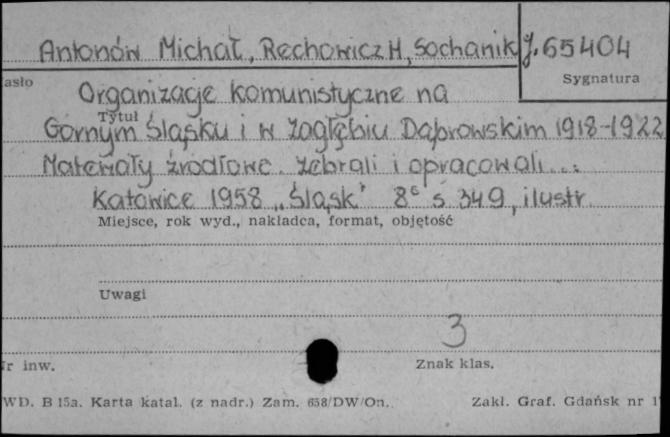 Antonów Michał, Rechowicz H, Sochanik J. 65404
Sygnatura
asło
Organizacje komunistyczne na
Tytuł
Górnym Śląsku i w Zagłębiu Dąbrowskim 1918-1922
Materiały źródłowe. Zebrali i opracowali...:
Katowice 1958 „Śląsk" 8° s 349, ilustr.
Miejsce, rok wyd., nakładca, format, objętość
Uwagi
3
r inw.
Znak klas.
WD. B 15a. Karta katal. (z nadr.) Zam. 658/DW/On.
Zakł. Graf. Gdańsk nr 1